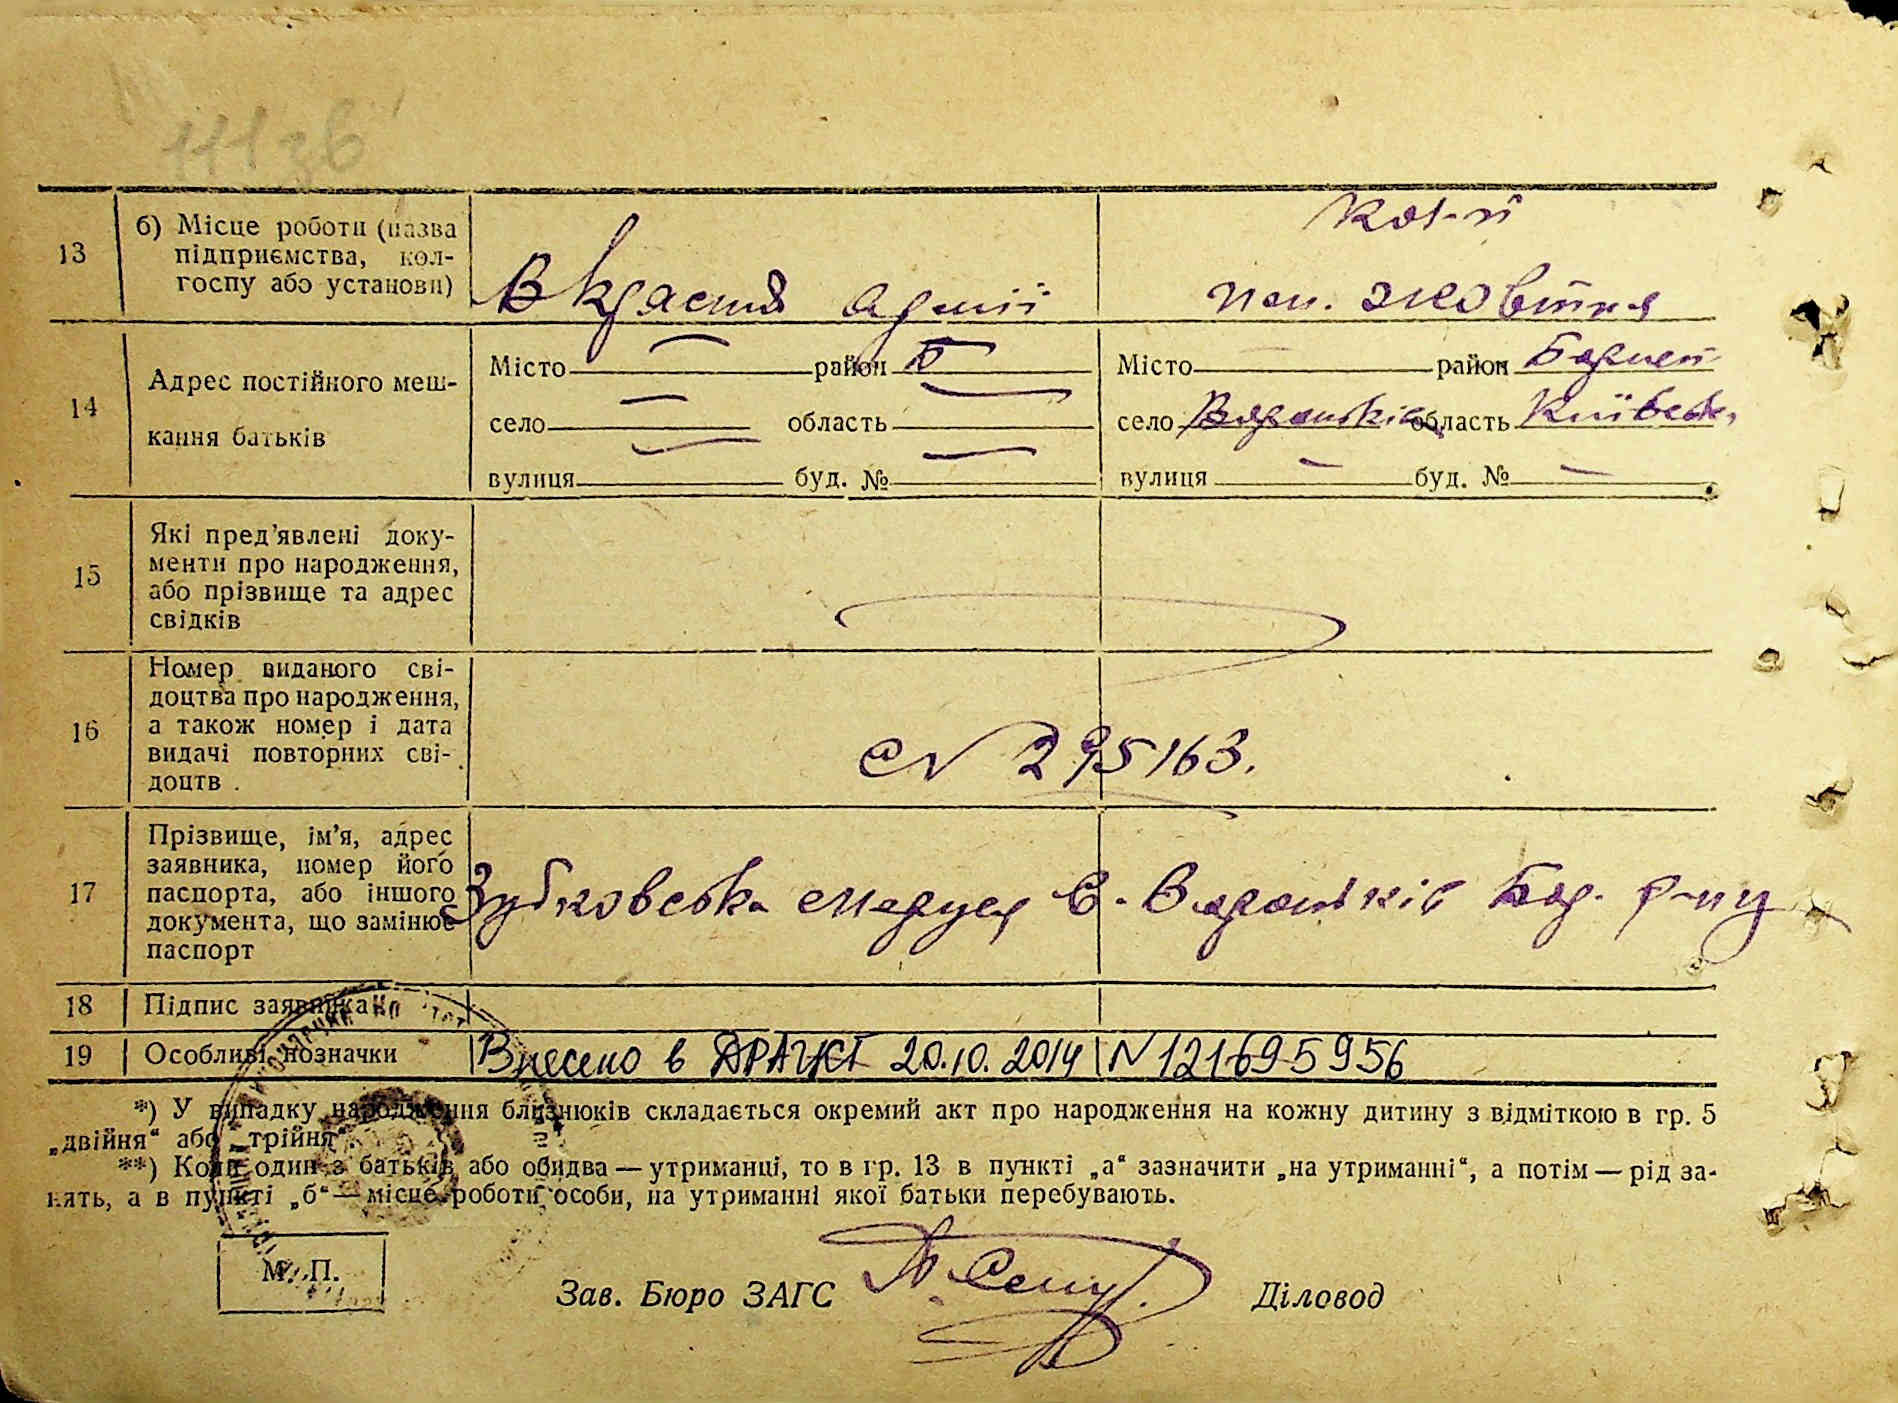 13
б) Місце роботи (назва
підприємства, кол-
госпу або установи)
В Красній армії
Кол-п
пам. Жовтня
14
Адрес постійного меш-
кання батьків
Місто — район —
село — область —
вулиця — буд. № —
Місто — район Боришп
село Вороньків область Київськ.
вулиця — буд. № —
15
Які пред'явлені доку-
менти про народження,
або прізвище та адрес
свідків
16
Номер виданого сві-
доцтва про народження,
а також номер і дата
видачі повторних сві-
доцтв
№ 295163.
17
Прізвище, ім'я, адрес
заявника, номер його
паспорта, або іншого
документа, що замінює
паспорт
Зубковська Маруся с. Вороньків Бор. р-ну
18
Підпис заявника
19
Особливі позначки
Внесено в ДРАЦСГ 20.10.2014 N 121695956
*) У випадку народження близнюків складається окремий акт про народження на кожну дитину з відміткою в гр. 5
„двійня“ або „трійня“.
**) Коли один з батьків або обидва — утриманці, то в гр. 13 в пункті „а“ зазначити „на утриманні“, а потім — рід за-
нять, а в пункті „б“ — місце роботи особи, на утриманні якої батьки перебувають.
М. П.
Зав. Бюро ЗАГС
Діловод